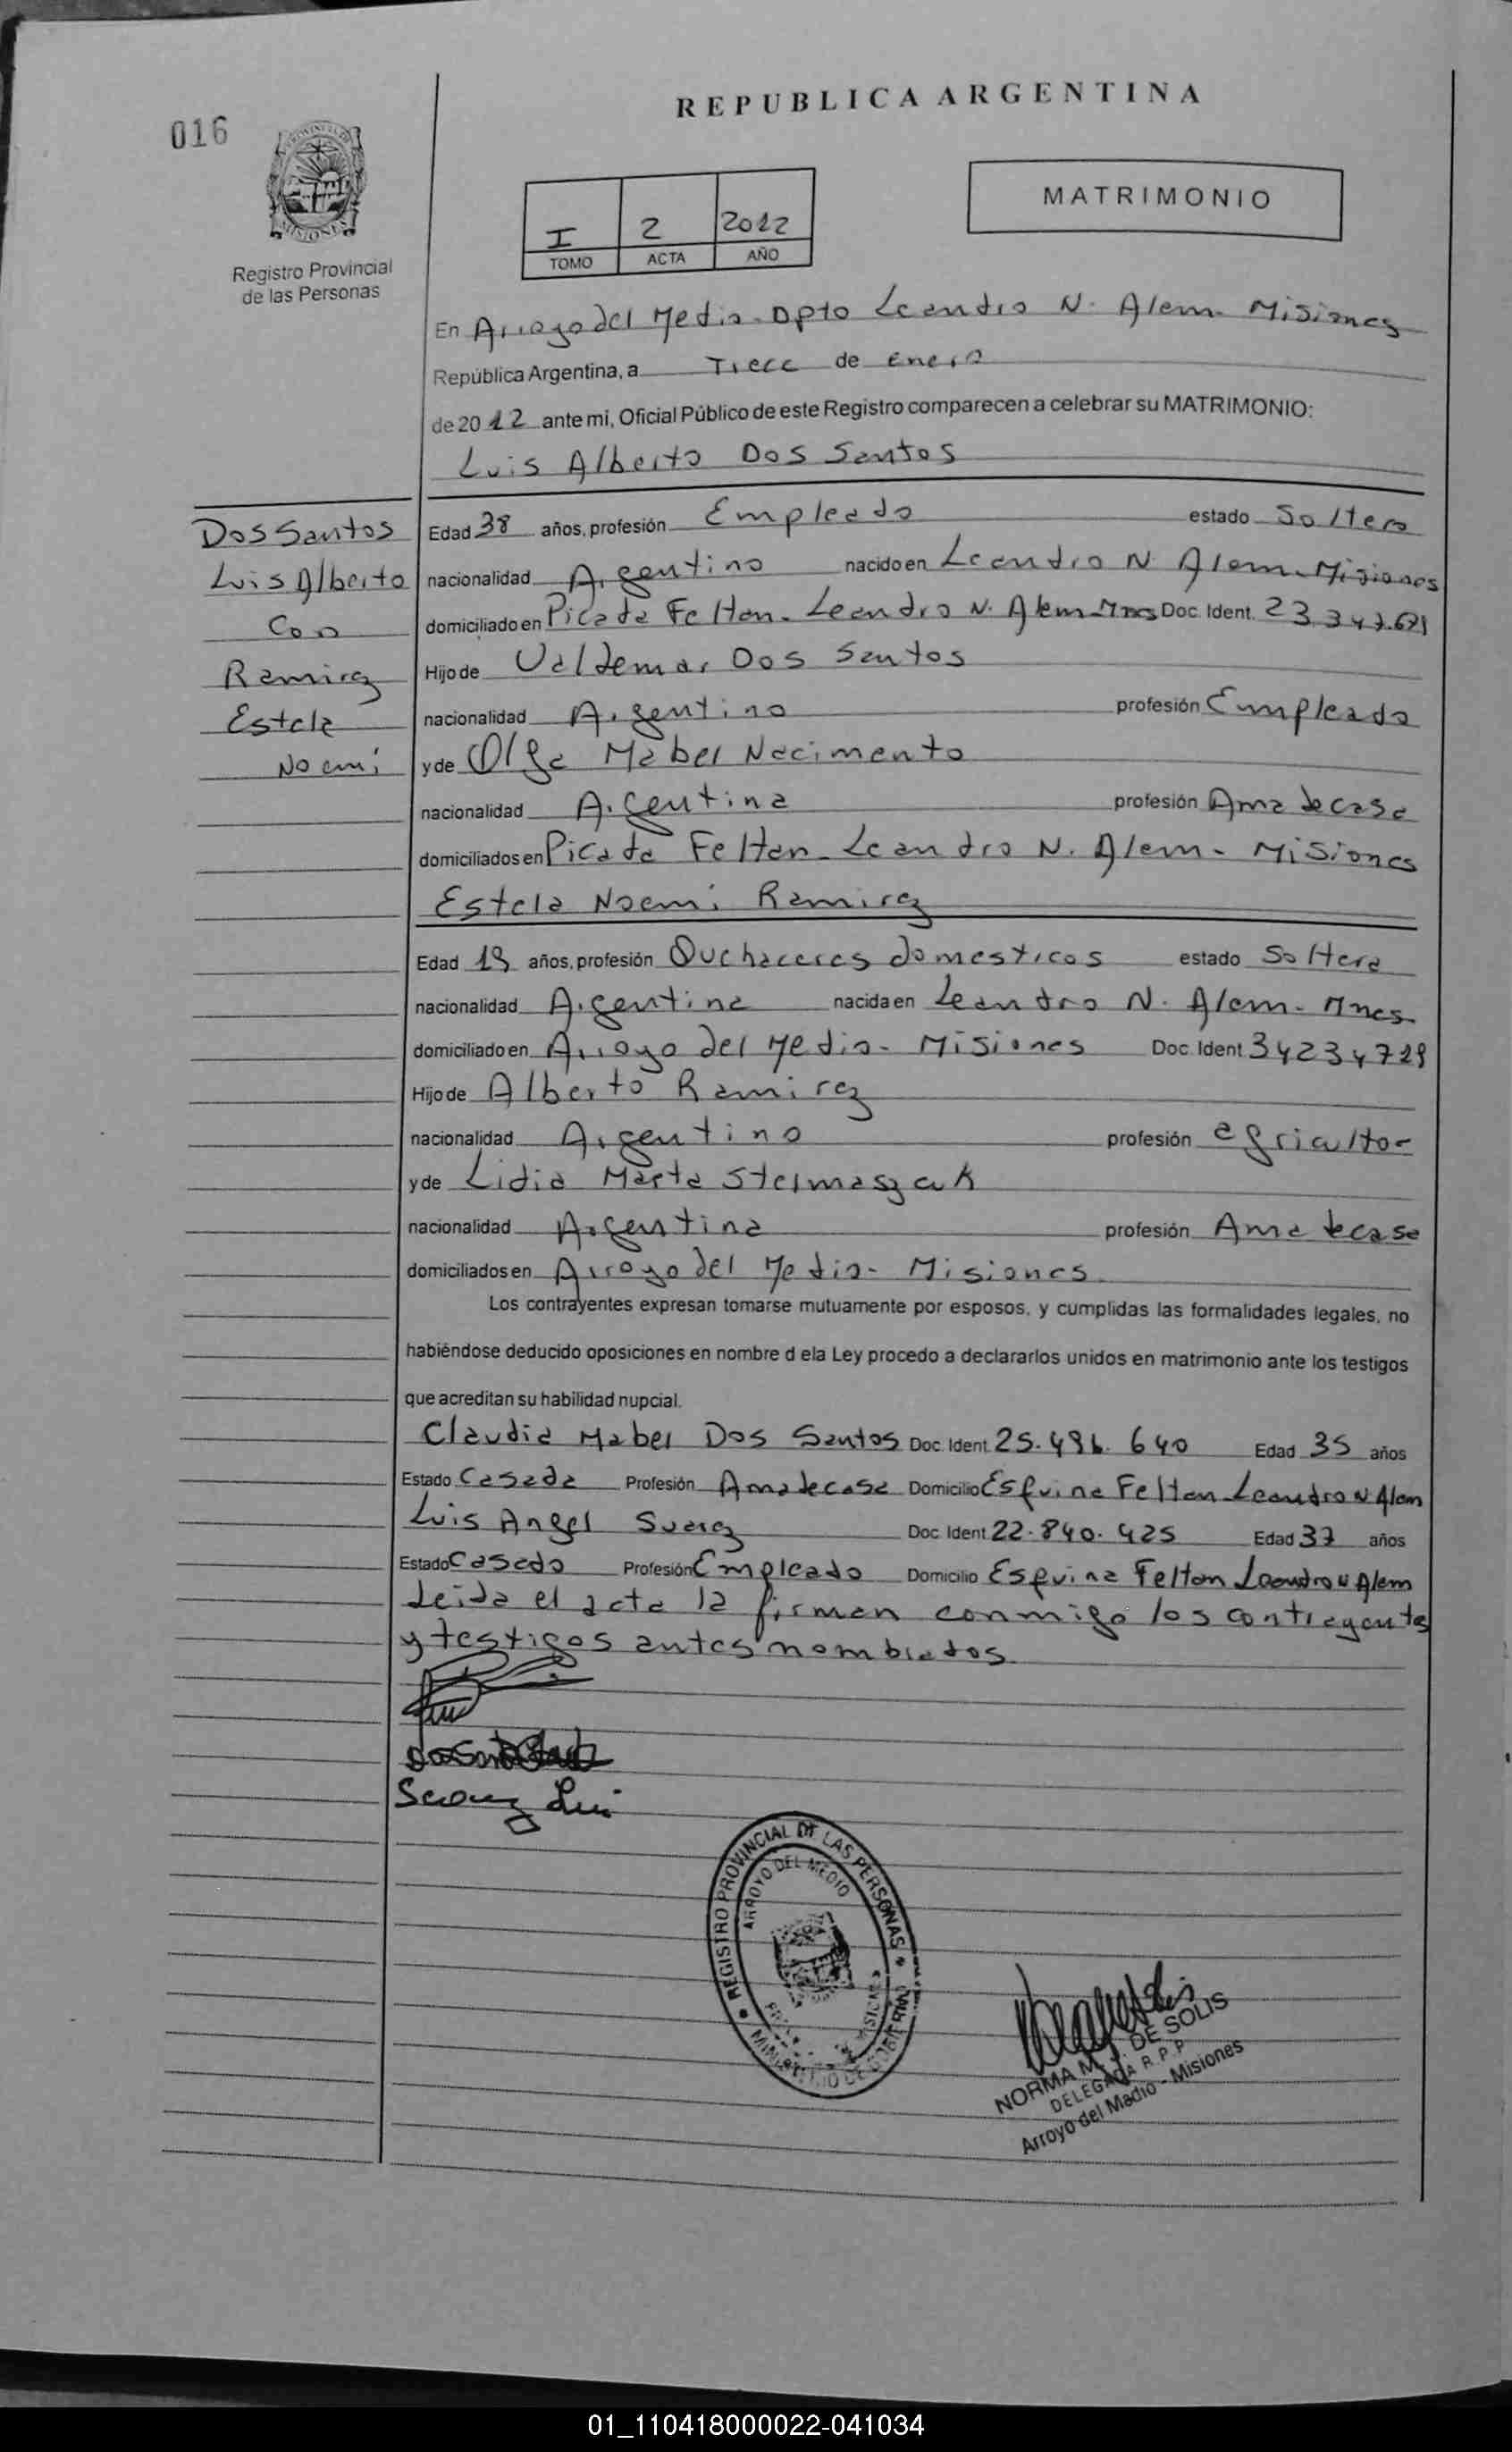 REPUBLICA ARGENTINA
016
MATRIMONIO
I 2 2012
TOMO ACTA AÑO
Registro Provincial
de las Personas
En Arroyo del Medio - Dpto Leandro N. Alem - Misiones
República Argentina, a Trece de Enero
de 2012 ante mi, Oficial Público de este Registro comparecen a celebrar su MATRIMONIO:
Luis Alberto Dos Santos
Dos Santos
Luis Alberto
Con
Ramirez
Estela
Noemí
Edad 38 años, profesión Empleado estado Soltero
nacionalidad Argentino nacido en Leandro N. Alem - Misiones
domiciliado en Picada Felton - Leandro N. Alem - Mnes Doc. Ident. 23.347.671
Hijo de Valdemar Dos Santos
nacionalidad Argentino profesión Empleado
y de Olga Mabel Nacimento
nacionalidad Argentina profesión Ama de casa
domiciliados en Picada Felton - Leandro N. Alem - Misiones
Estela Noemí Ramirez
Edad 19 años, profesión Quehaceres domesticos estado Soltera
nacionalidad Argentina nacida en Leandro N. Alem - Mnes
domiciliado en Arroyo del Medio - Misiones Doc. Ident 34234729
Hijo de Alberto Ramirez
nacionalidad Argentino profesión agricultor
y de Lidia Marta Stelmaszcuk
nacionalidad Argentina profesión Ama de casa
domiciliados en Arroyo del Medio - Misiones
Los contrayentes expresan tomarse mutuamente por esposos, y cumplidas las formalidades legales, no
habiéndose deducido oposiciones en nombre d ela Ley procedo a declararlos unidos en matrimonio ante los testigos
que acreditan su habilidad nupcial.
Claudia Mabel Dos Santos Doc. Ident. 25.496.640 Edad 35 años
Estado Casada Profesión Ama de casa Domicilio Esquina Felton Leandro N Alem
Luis Angel Suarez Doc. Ident 22.840.425 Edad 37 años
Estado Casado Profesión Empleado Domicilio Esquina Felton Leandro N Alem
Leida el acta la firman conmigo los contrayentes
y testigos antes nombrados
Suarez Luis
REGISTRO PROVINCIAL DE LAS PERSONAS
ARROYO DEL MEDIO
MINISTERIO DE GOBIERNO
NORMA M. DE SOLIS
DELEGADA R.P.P
Arroyo del Madio - Misiones
01_110418000022-041034